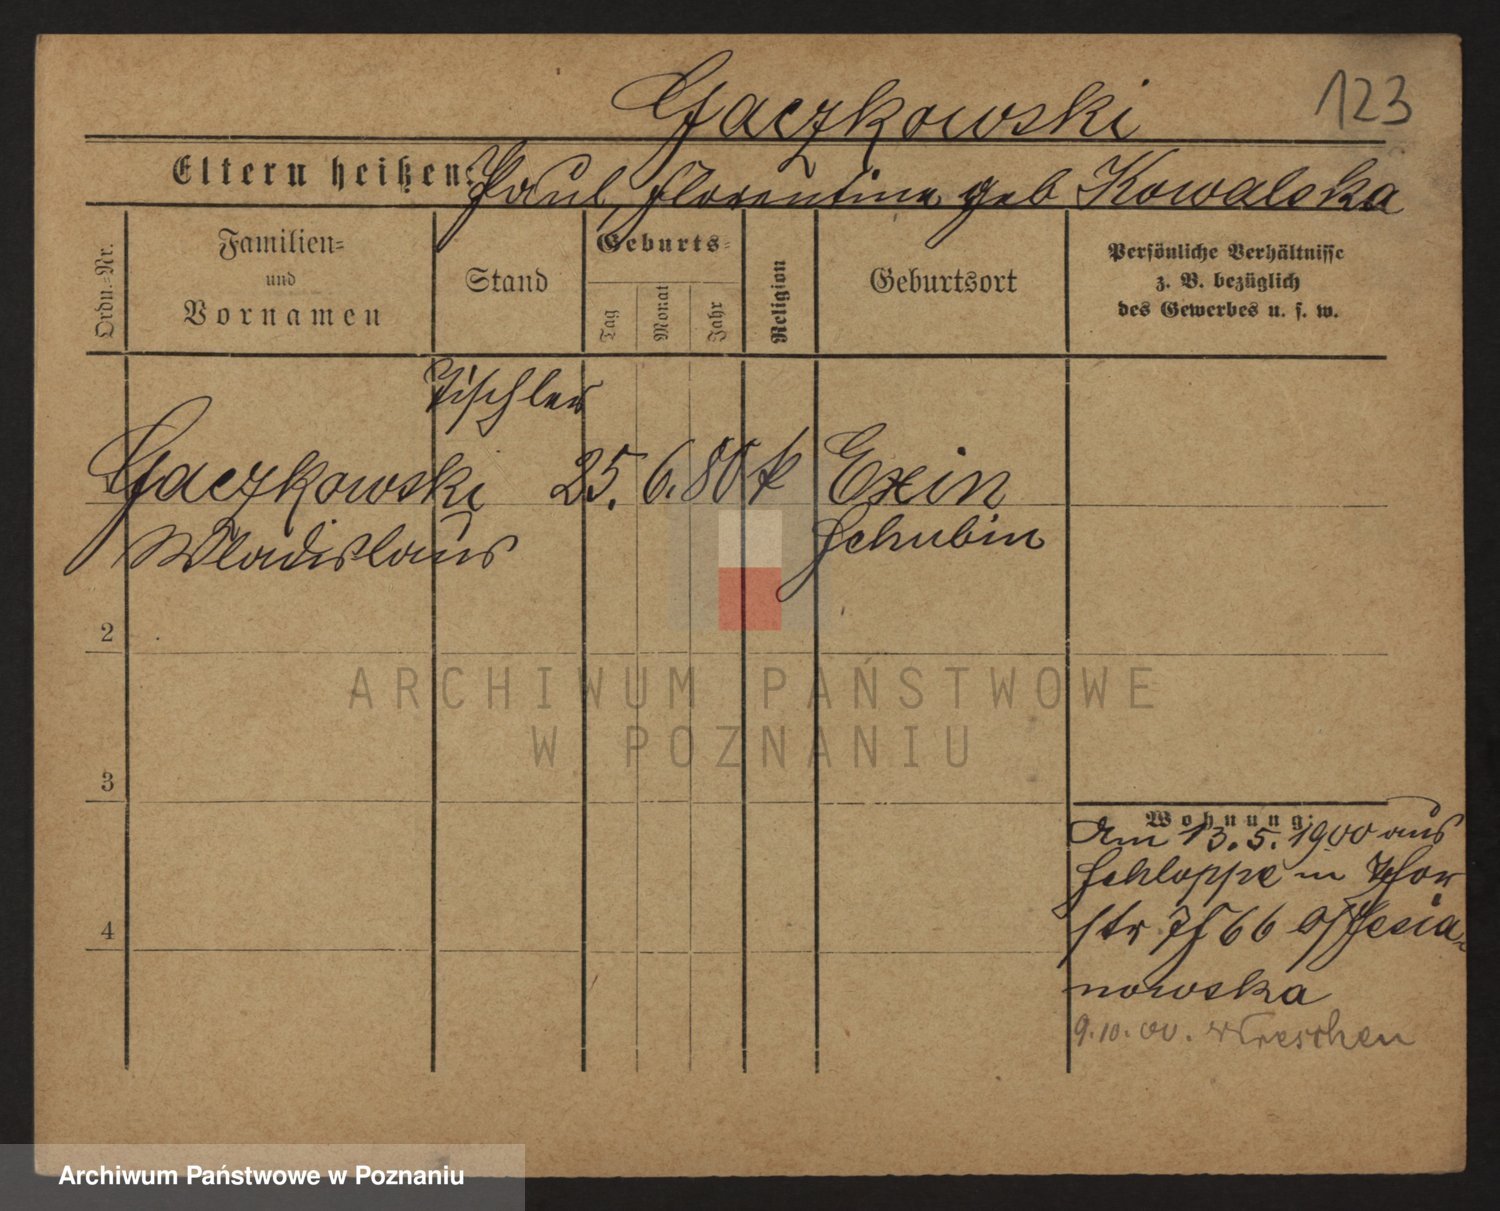 Gaczkowski 123
Eltern heißen: Paul, Florentina geb Kowalska
Ordn.=Nr.
Familien=
und
Vornamen
Stand
Geburts=
Tag
Monat
Jahr
Religion
Geburtsort
Persönliche Verhältnisse
z. B. bezüglich
des Gewerbes u. s. w.
Tischler
Gaczkowski 25. 6. 80 k Exin
Wladislaus Schubin
2
3
4
Wohnung:
Am 13. 5. 1900 aus
Schloppe in
str 66
nowska
9. 10. 00. Wreschen
ARCHIWUM PAŃSTWOWE
W POZNANIU
Archiwum Państwowe w Poznaniu